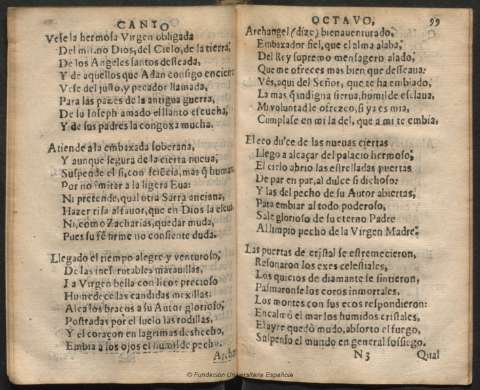 CANTO
Vese la hermosa Virgen obligada
Del mismo Dios, del Cielo, de la tierra,
De los Angeles santos desseada,
Y de aquellos que Adan consigo encierra
Vese del justo, y pecador llamada,
Para las pazes de la antigua guerra,
De su Ioseph amado el llanto escucha,
Y de sus padres la congoxa mucha.
Atiende a la embaxada soberana,
Y aunque segura de la cierta nueua,
Suspende el si, con sciẽcia, mas q̃ humana
Por no imitar a la ligera Eua:
Ni pretende, qual otra Sarra anciana,
Hazer risa al fauor, que en Dios la eleua
Ni, como Zacharias, quedar muda,
Pues su fê firme no consiente duda.
Llegado el tiempo alegre y venturoso,
De las inescrutables marauillas,
La Virgen bella con licor precioso
Humedece las candidas mexillas:
Alça los braços a su Autor glorioso,
Postradas por el suelo las rodillas,
Y el coraçon en lagrimas deshecho,
Embia a los ojos el humilde pecho.
Archan
OCTAVO, 99
Archangel (dize) bienauenturado,
Embaxador fiel, que el alma alaba,
Del Rey supremo mensagero alado,
Que me ofreces mas bien que desseaua:
Vès, aqui del Señor, que te ha embiado,
La mas q̃ indigna sierua, humilde esclaua,
Mi voluntad le ofrezco, si ya es mia,
Cumplase en mi la del, que a mi te embia,
El eco dulce de las nueuas ciertas
Llego a alcaçar del palacio hermoso,
El cielo abrio las estrelladas puertas
De par en par, al dulce si dichoso:
Y las del pecho de su Autor abiertas,
Para embiar al todo poderoso,
Sale glorioso de su eterno Padre
Al limpio pecho de la Virgen Madre.
Las puertas de cristal se estremecieron,
Resonaron los exes celestiales,
Los quicios de diamante se sintieron,
Pasmaronse los coros inmortales,
Los montes con sus ecos respondieron:
Encalmó el mar los humidos cristales,
El ayre quedò mudo, absorto el fuego,
Suspenso el mundo en general sossiego.
N 3 Qual
© Fundación Universitaria Española